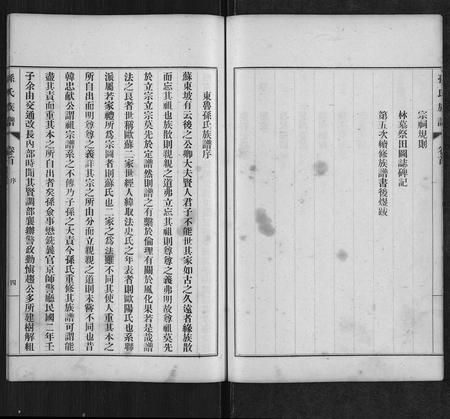 孫氏族譜
卷首
宗祠規則
林墓祭田圖誌碑記
第五次續修族譜書後爆跋
東魯孫氏族譜序
蘇東坡有云後之公卿大夫賢人君子不能世其家如古之久遠者緣族散
而忘其祖也族散則親親之道弗立忘其祖則尊尊之義弗明故尊祖莫先
於立宗立宗莫先於定譜然則譜之有繫於倫理有關於風化果若是哉譜
法之良者世稱歐蘇二家世經人緯取法史氏之年表者則歐陽氏也系聯
派屬若家禮所爲宗圖者則蘇氏也二家之爲法雖不同其使人重其本之
所自出而明尊尊之義詳其宗之所由分而立親親之道則未嘗不同也昔
韓忠獻公謂祖宗譜系之不傳乃子孫之大責今孫氏重修其族譜可謂能
盡其責而重其本之所自出者矣孫僉事懋銑襄官京師警廳民國二年壬
子余由交通改長內部時聞其賢調部襄辦警政勤愼趨公多所建樹解組
孫氏族譜
卷首
序
四